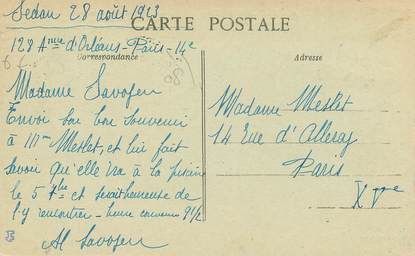 Sedan 28 août 1923
CARTE POSTALE
128 Anue d'Orléans - Paris - 14e
Correspondance
Adresse
Madame Savofen
Envoi son bon souvenir
à Mme Meslet, et lui fait
savoir qu'elle ira à la
le 5 et serait heureuse de
l'y rencontrer - heure 9 1/2
Savofen
Madame Meslet
14 Rue d'Alleray
Paris
XVe